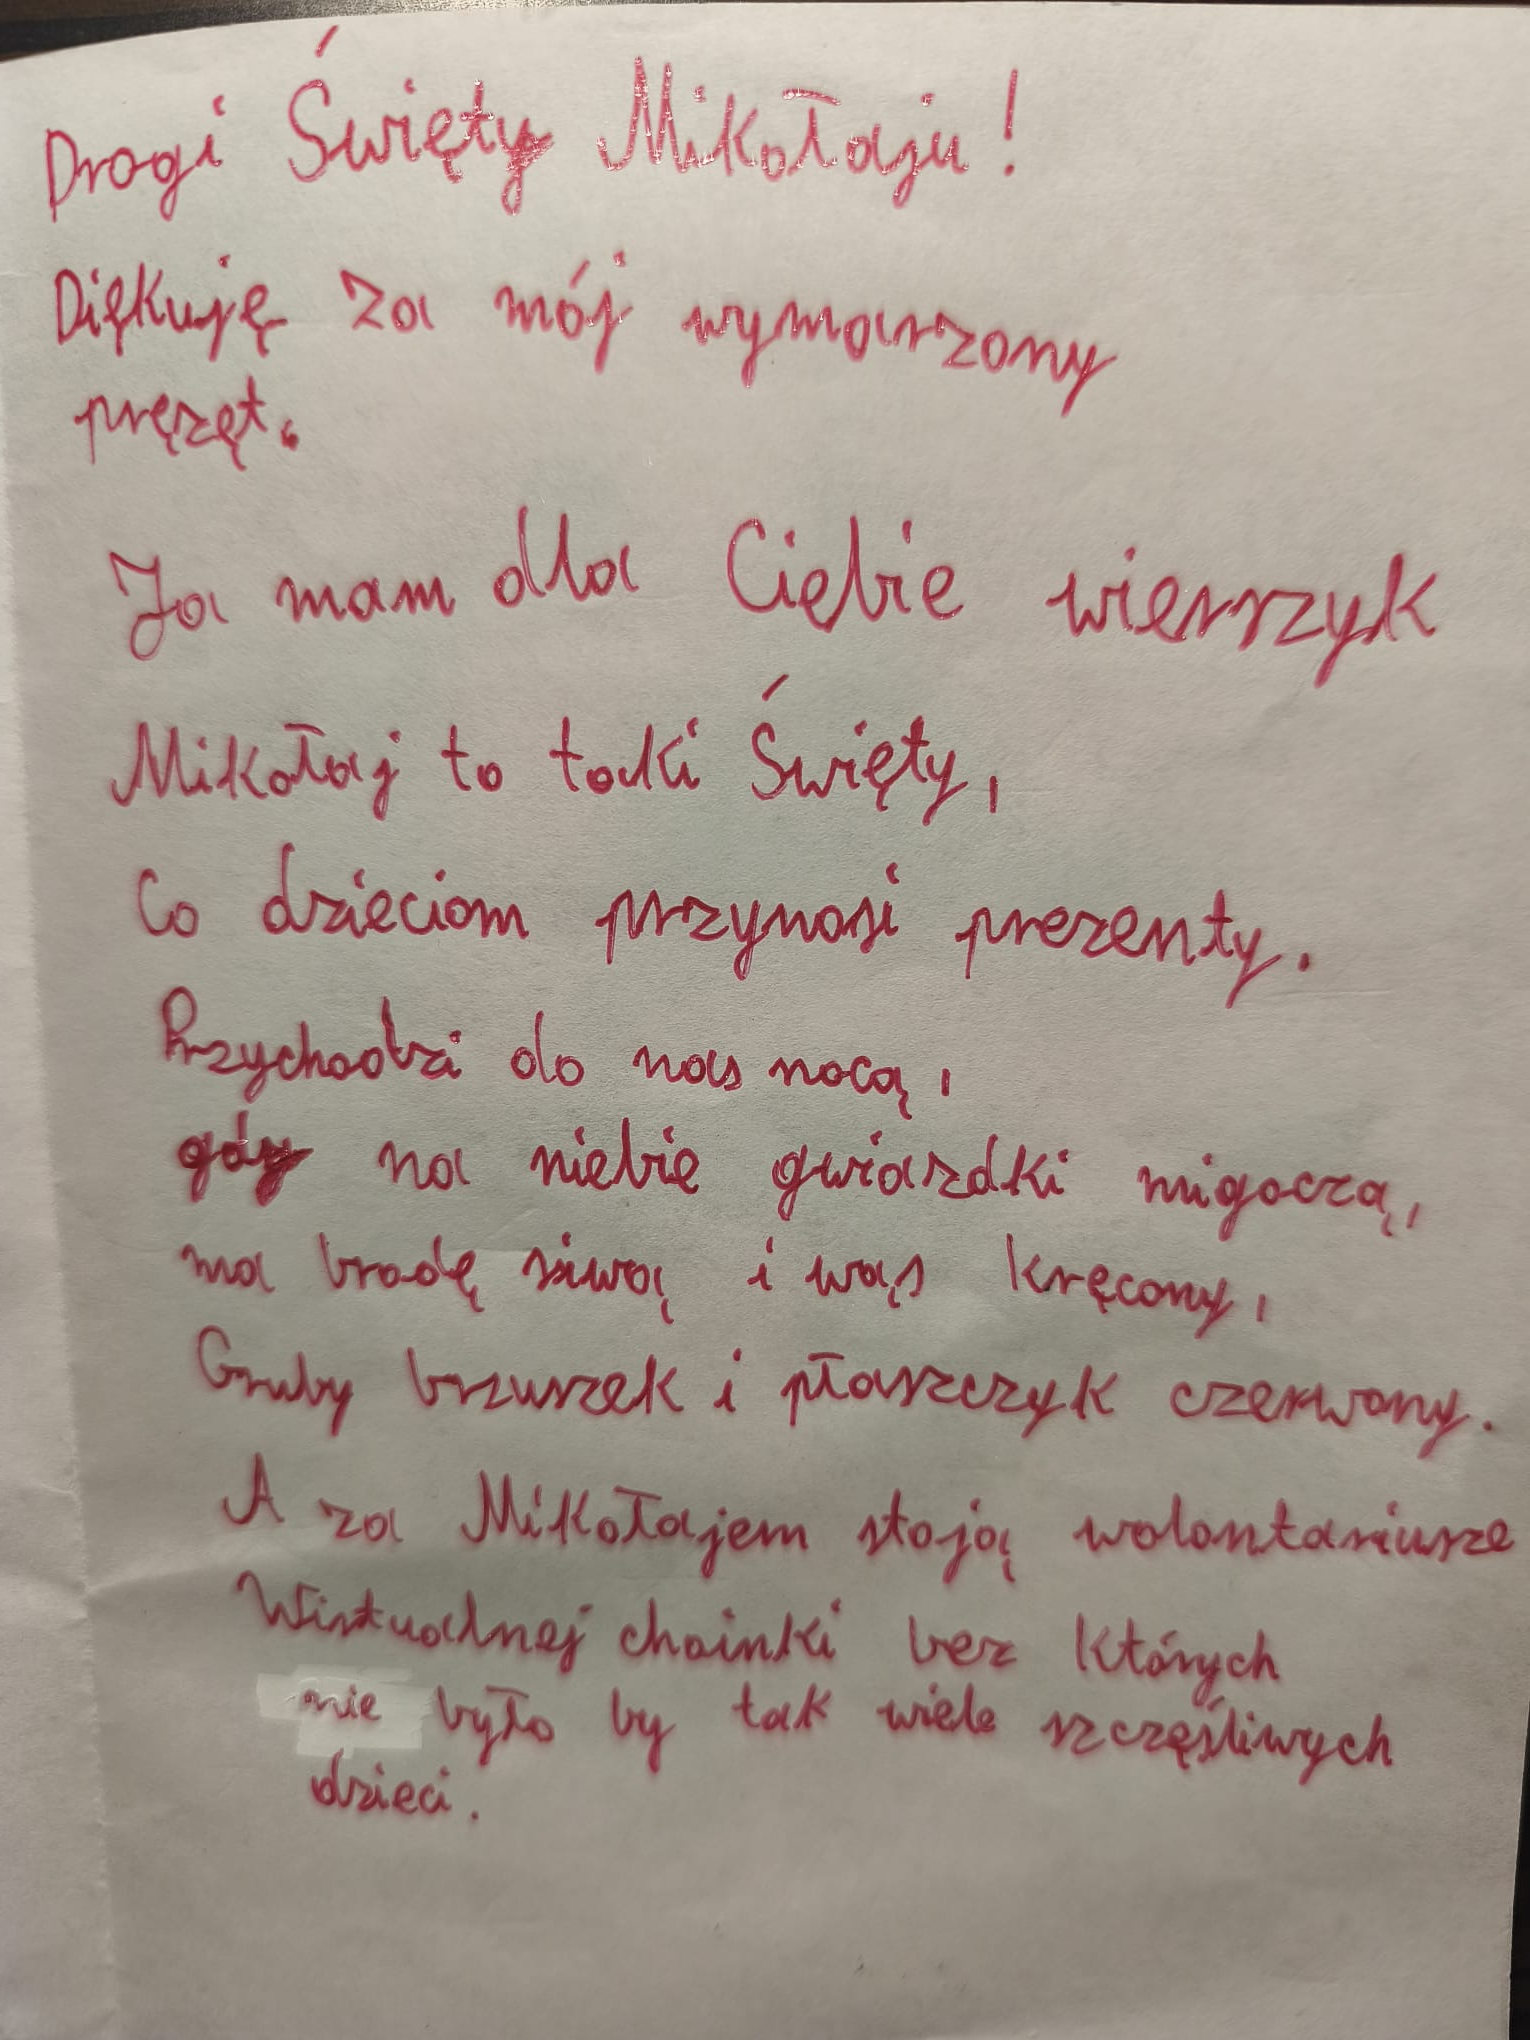 Drogi Święty Mikołaju!
Diękuję za mój wymarzony
pręzęt.
Ja mam dla Ciębie wierszyk
Mikołaj to taki Święty,
Co dzieciom przynosi prezenty.
Przychodzi do nas nocą,
gdy na niebie gwiazdki migoczą,
ma brodę siwą i wąs kręcony,
Gruby brzuszek i płaszczyk czerwony.
A za Mikołajem stoją wolontariusze
Wirtualnej choinki bez których
nie było by tak wiele szczęśliwych
dzieci.